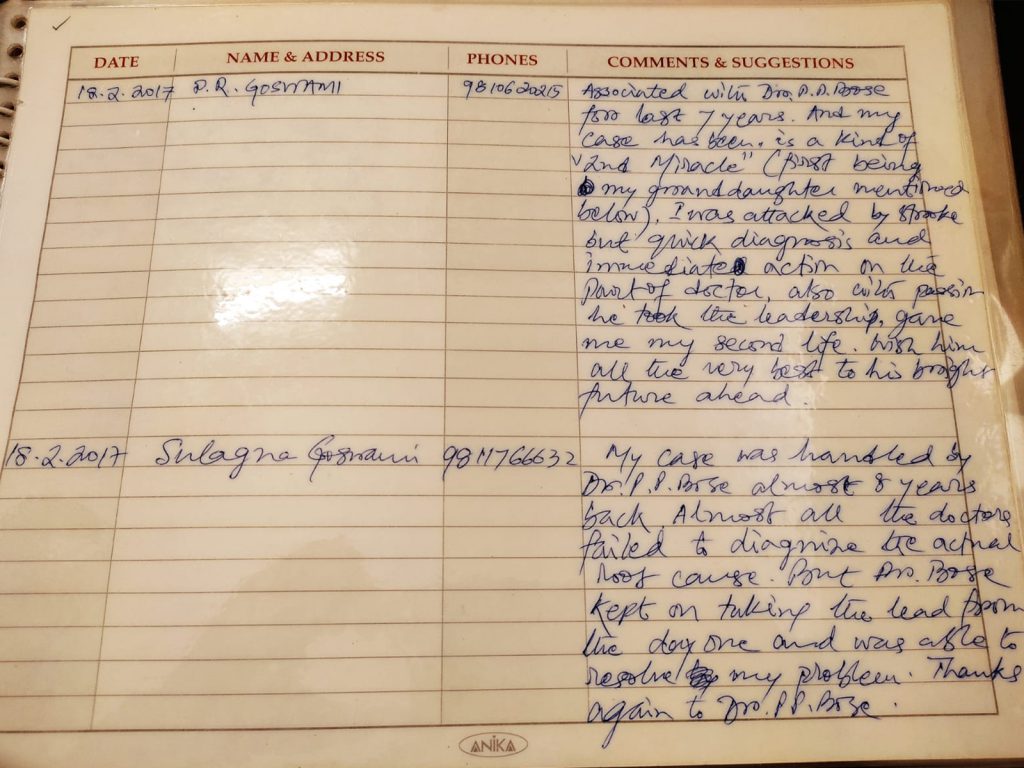 DATE NAME & ADDRESS PHONES COMMENTS & SUGGESTIONS
18.2.2017 P. R. GOSWAMI 9810620215 Associated with Dr. P.P. Bose
for last 7 years. And my
case has been, is a kind of
"2nd Miracle" (first being
my granddaughter mentioned
below). I was attacked by stroke
but quick diagnosis and
immediate action on the
part of doctor, also with passion
he took the leadership, gave
me my second life. Wish him
all the very best to his bright
future ahead.
18.2.2017 Sulagna Goswami 9811766632 My case was handled by
Dr. P.P. Bose almost 8 years
back. Almost all the doctors
failed to diagnize the actual
root cause. But Dr. Bose
kept on taking the lead from
the day one and was able to
resolve my problem. Thanks
again to Dr. P.P. Bose.
ANIKA